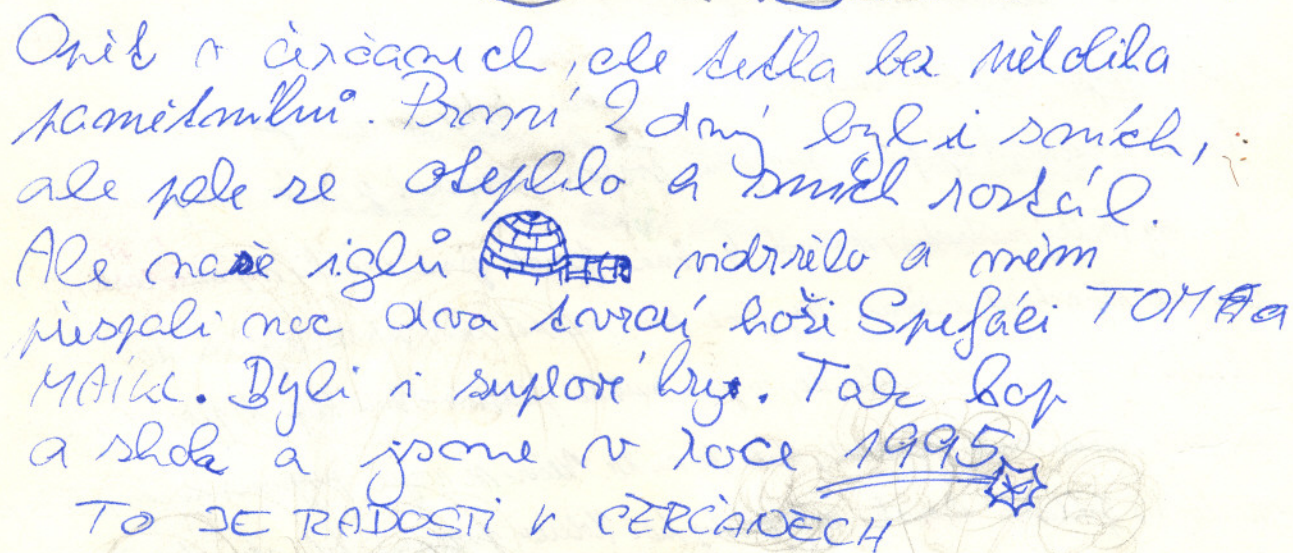 Opět v čerčanech, ale tetka bez několika
pamětníků. První 2 dny byl i sních,
ale pak se oteplilo a sních rostál.
Ale naše iglů vidrželo a v něm
přespali noc dva tvrdí hoši Spefáci TOM a
MAIKL. Byli i suplové hry. Tak hop
a skok a jsme v roce 1995
TO JE RADOSTI V ČERČANECH